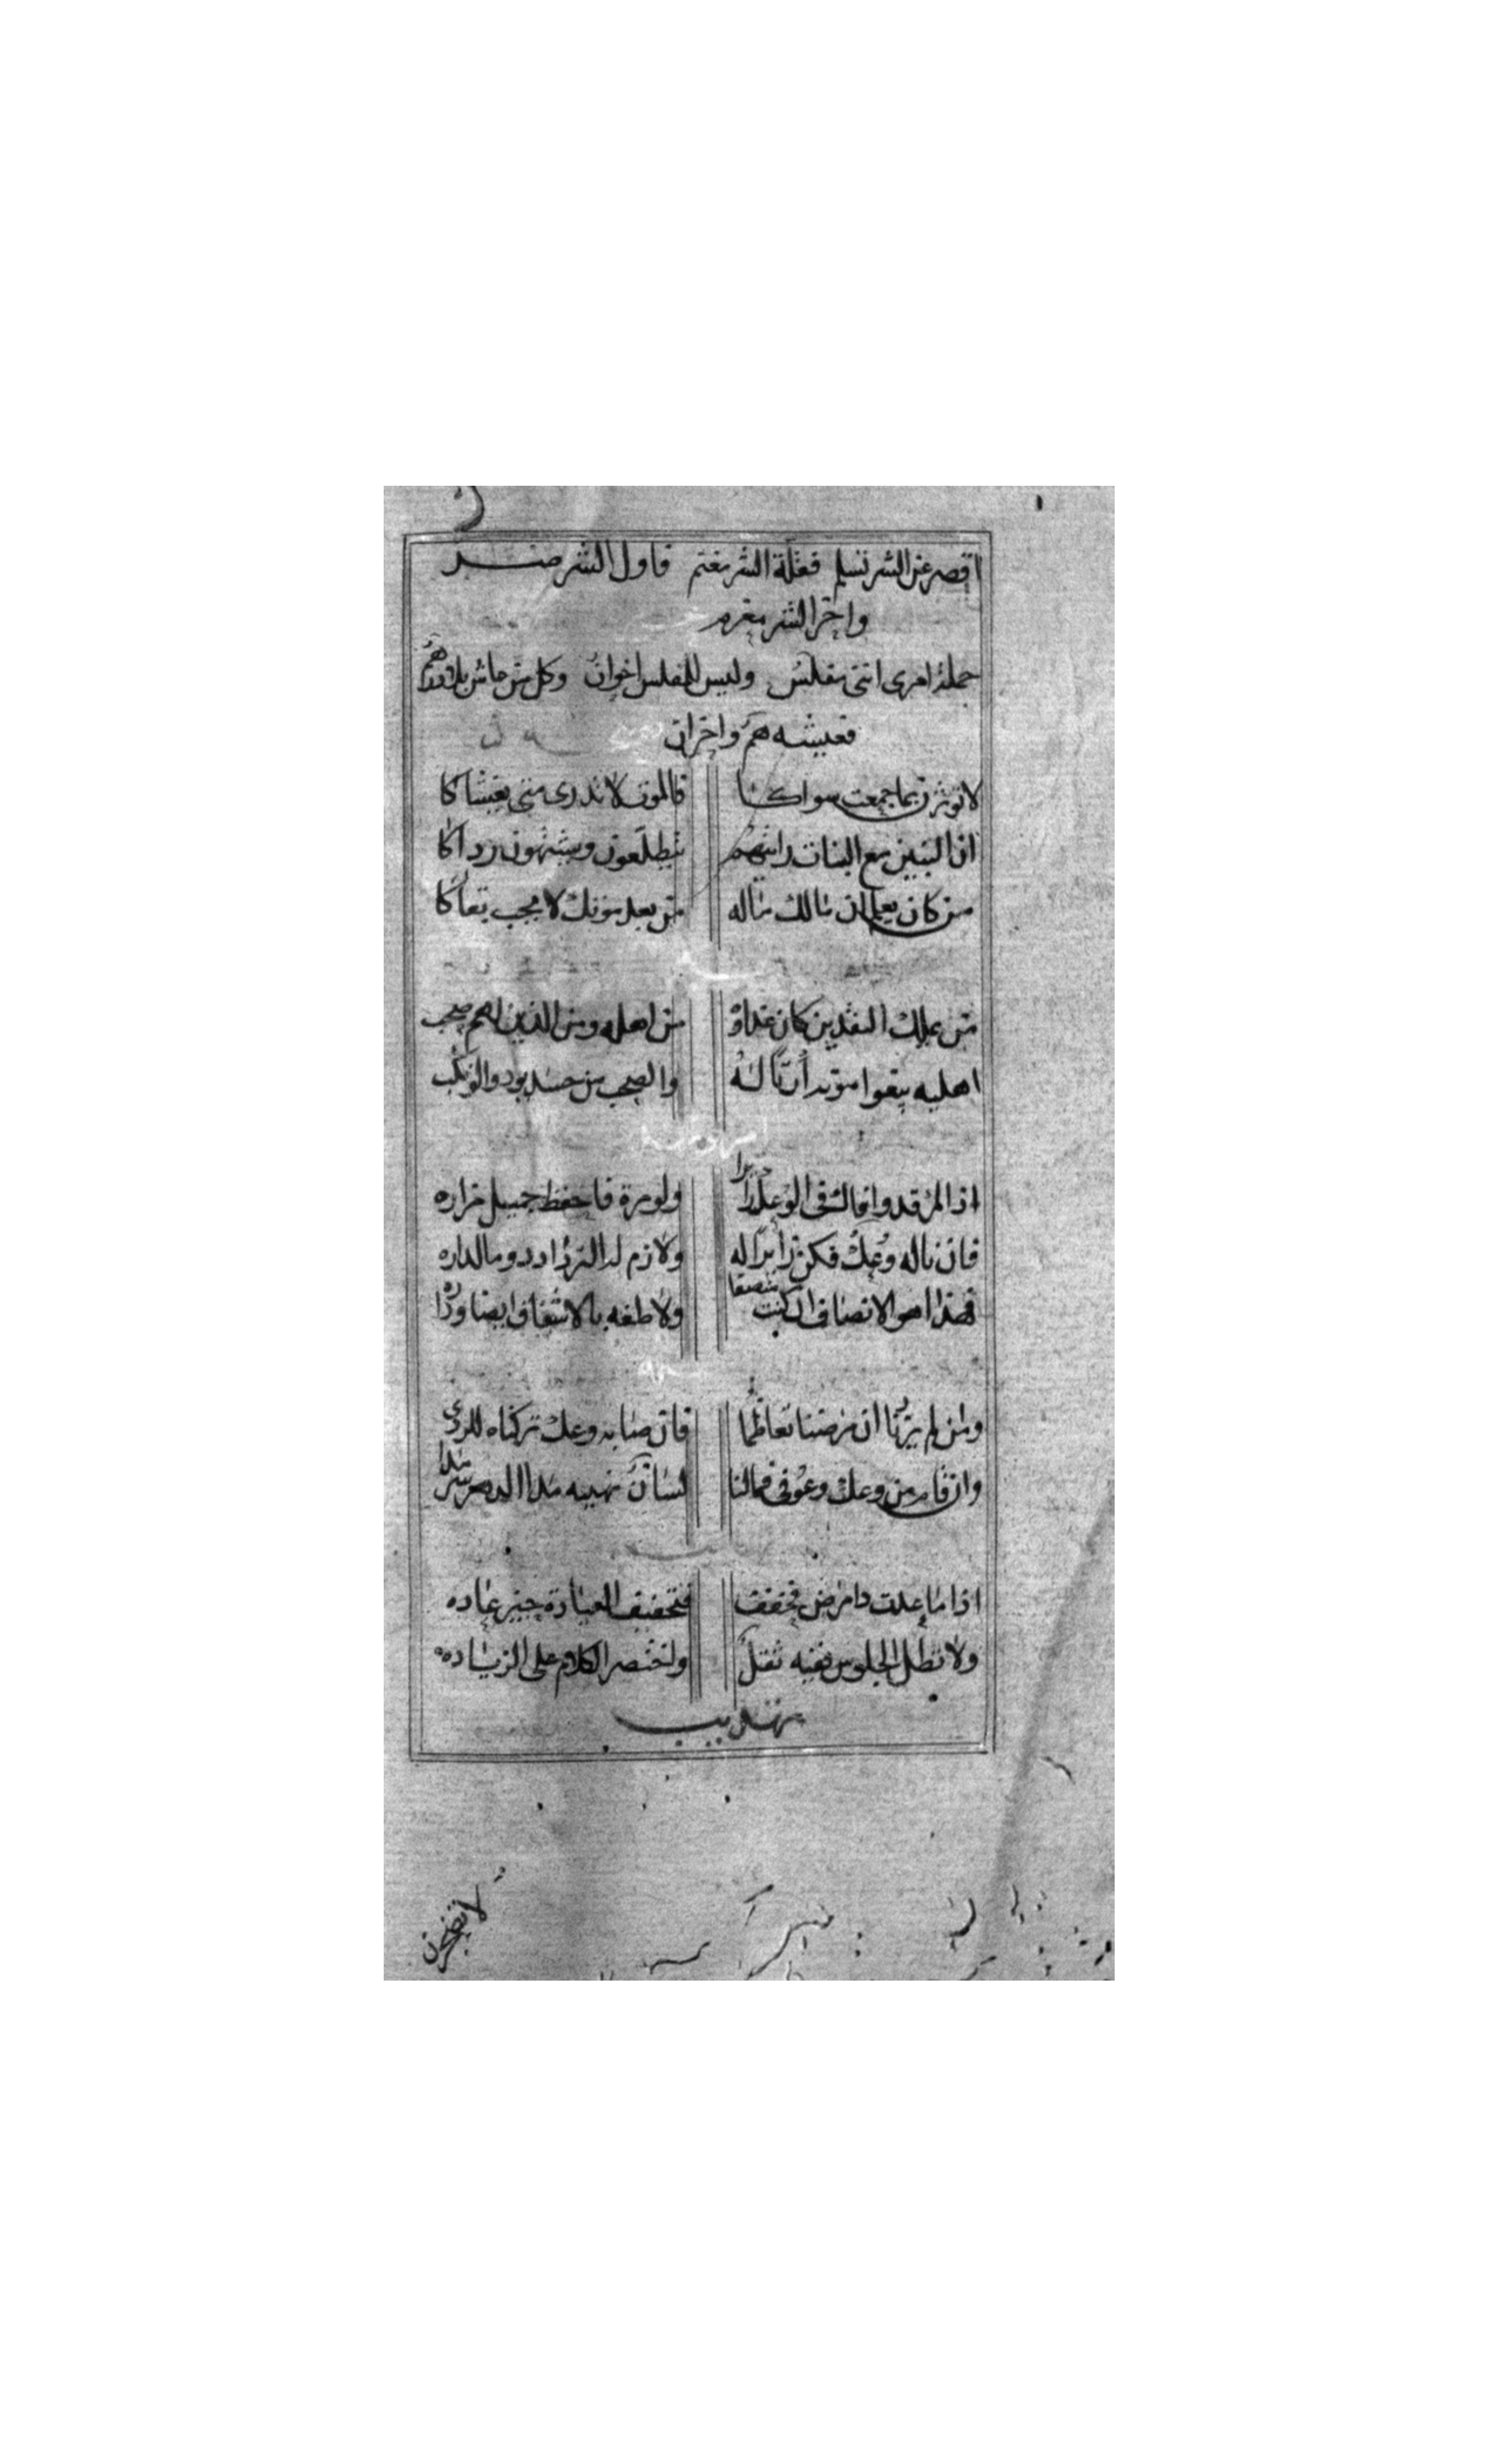 اقصر عن الشر تسلم فعلة الشر مغتم فاول الشر ضر
واخر الشر مغرم
جملة امرى اننى مفلس وليس للمفلس اخوان وكل من عاش بلا درهم
فعيشه هم واحزان
لا توثرن بما جمعت سواكا فالموت لا تدرى متى يغشاكا
ان البنين مع البنات رايتهم يتطلعون ويشتهون رداكا
من كان يعلم ان مالك ماله من بعد موتك لا يحب بقاكا
من يملك النقدين كان عداوة من اهله ومن الذين لهم صحب
اهليه يبغوا موته ان ماله والصحب من حسد يودوا
اذا المرء قد وافاك فى الوعك زايرا ولو مرة فاحفظ جميل مزاره
فان ناله وعك فكن زايرا له ولازم له الترداد دوما لداره
فهذا هو الانصاف ان كنت منصفا ولاطفه بالاشفاق ايضا وداره
ومن لم يزرنا ان مرضنا تعاظما فان صابه وعك تركناه للردى
وان قام من وعك وعوفى فما لنا لسان نهنيه مدا الدهر سرمدا
اذا ما عدت ذا مرض فخفف فتخفيف العيادة خير عاده
ولا تطل الجلوس ففيه ثقل ولتختصر الكلام على الزياده
تهذيب
لا تضجرن